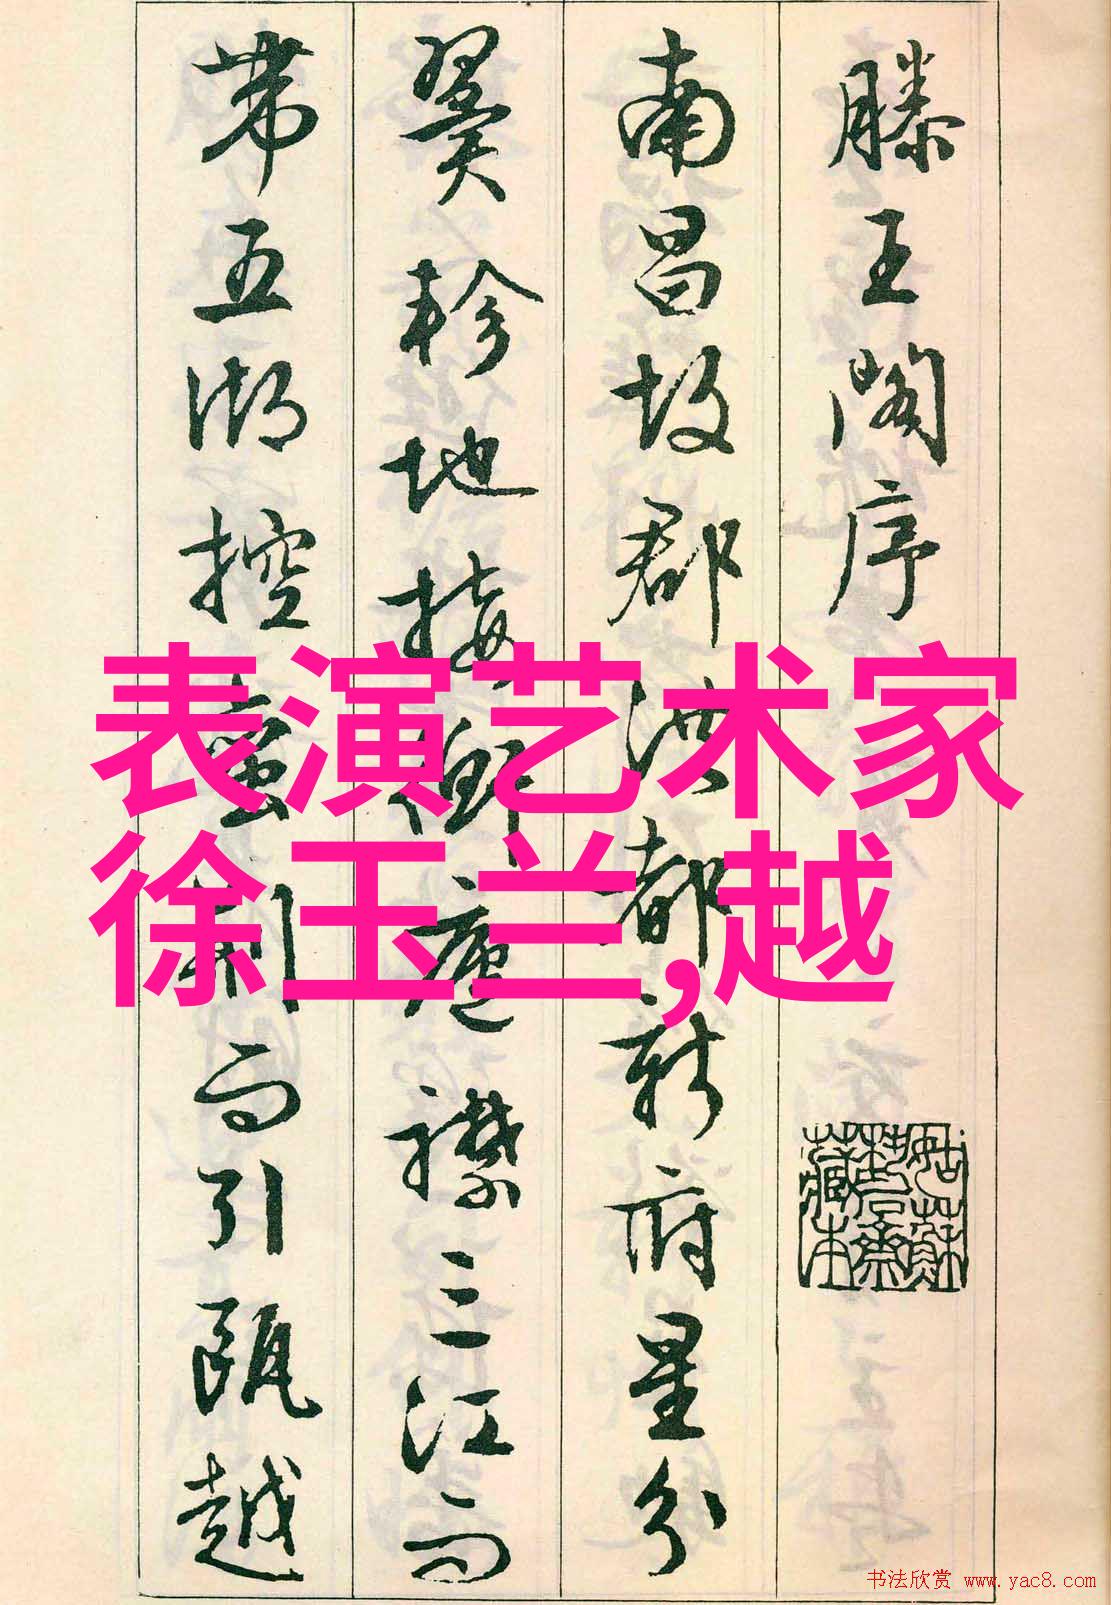 滕王閣序
南昌故郡洪都新府星分
翼軫地接衡廬襟三江而
帶五湖控蠻荊而引甌越
表演艺术家
徐玉兰,越
书法欣赏 www.yac8.com